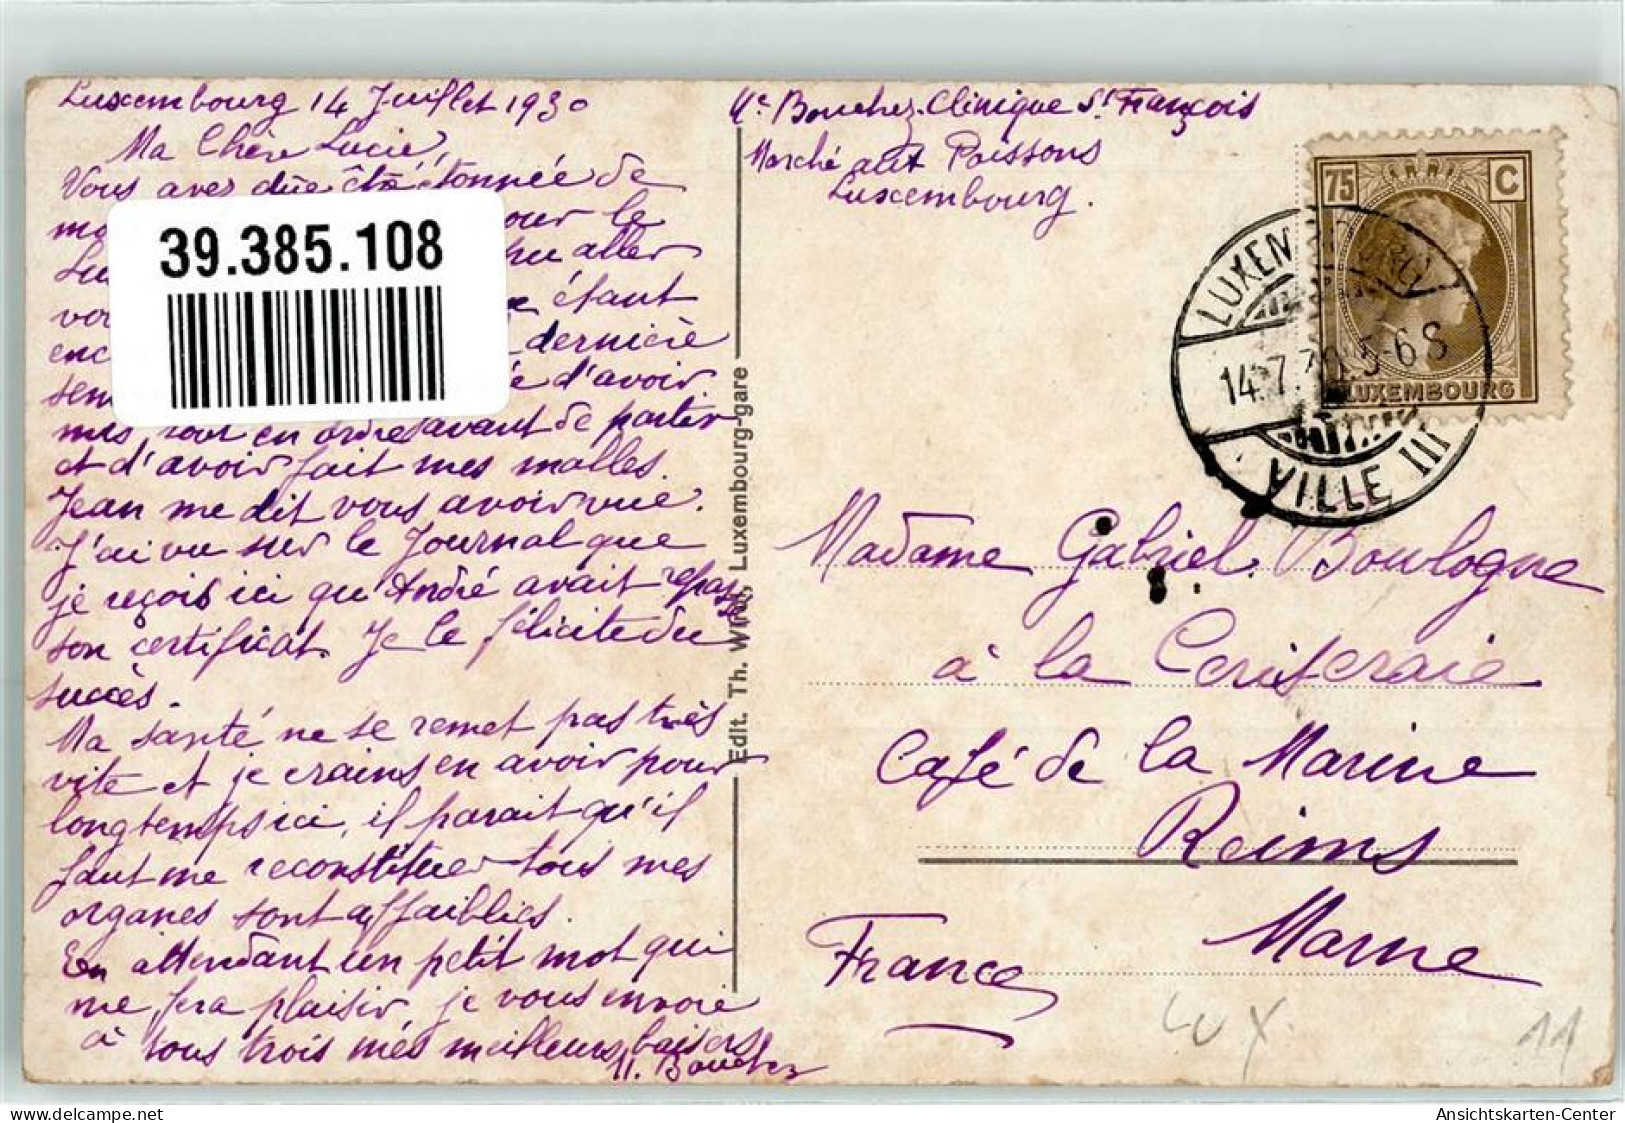 Luxembourg 14 Juillet 1930
Ma Chère Lucie,
Vous avez dûe être étonnée de
mo our le
Lu pu aller
vou étant
enc dernière
sem e d'avoir
mis tout en ordre avant de partir
et d'avoir fait mes malles.
Jean me dit vous avoir vue.
J'ai vu sur le Journal que
je reçois ici qu'André avait repassé
son certificat. Je le félicite du
succès.
Ma santé ne se remet pas très
vite et je crains en avoir pour
longtemps ici, il parait qu'il
faut me reconstituer tous mes
organes sont affaiblies.
En attendant un petit mot qui
me fera plaisir, je vous envoie
à tous trois mes meilleurs baisers
M. Bouchez
39.385.108
Edit. Th. Wirol, Luxembourg-gare
Bouchez. Clinique St François
Marché aux Poissons
Luxembourg.
75 C
LUXEMBOURG
LUXEMBOURG
14.7.30.5-6 S
VILLE III
Madame Gabriel Boulogne
à la
Café de la Marine
Reims
Marne
France
LUX
11
www.delcampe.net
Ansichtskarten-Center